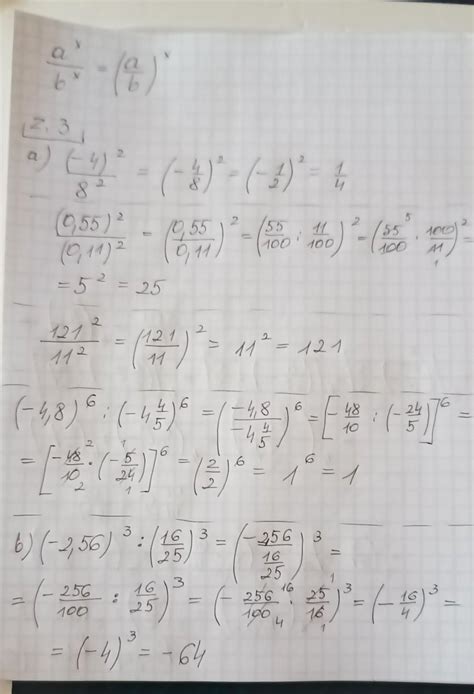 a^x / b^x = (a/b)^x
z. 3
a) (-4)^2 / 8^2 = (-4/8)^2 = (-1/2)^2 = 1/4
(0,55)^2 / (0,11)^2 = (0,55 / 0,11)^2 = (55/100 : 11/100)^2 = (55^5/100 · 100/11_1)^2 =
= 5^2 = 25
121^2 / 11^2 = (121/11)^2 = 11^2 = 121
(-4,8)^6 : (-4 4/5)^6 = (-4,8 / -4 4/5)^6 = [-48/10 : (-24/5)]^6 =
= [-48^2/10_2 · (-5^1/24_1)]^6 = (2/2)^6 = 1^6 = 1
b) (-2,56)^3 : (16/25)^3 = (-2,56 / 16/25)^3 =
= (-256/100 : 16/25)^3 = (-256^16/100_4 · 25^1/16_1)^3 = (-16/4)^3 =
= (-4)^3 = -64